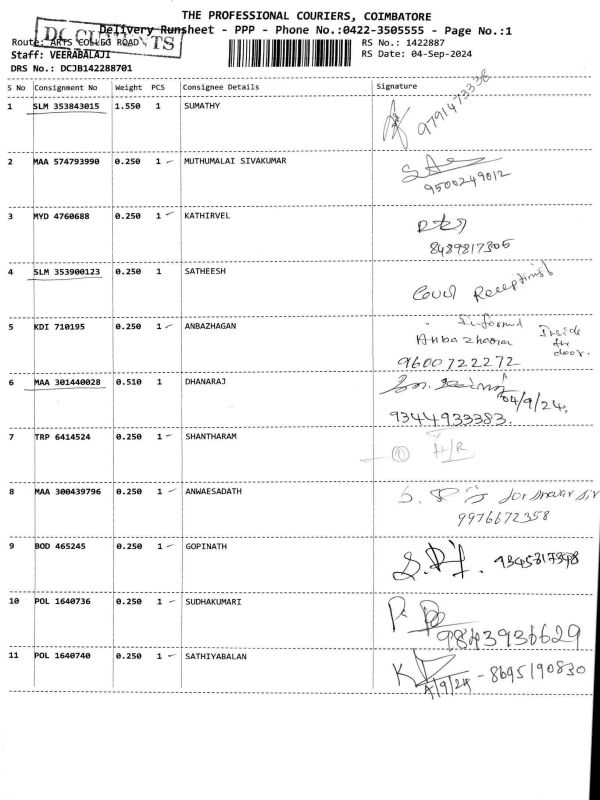 THE PROFESSIONAL COURIERS, COIMBATORE
Delivery Runsheet - PPP - Phone No.:0422-3505555 - Page No.:1
DOCUMENTS
Route: ARTS COLLEG ROAD
RS No.: 1422887
Staff: VEERABALAJI
RS Date: 04-Sep-2024
DRS No.: DCJB142288701
S No Consignment No Weight PCS Consignee Details Signature
1 SLM 353843015 1.550 1 SUMATHY 9791473338
2 MAA 574793990 0.250 1 MUTHUMALAI SIVAKUMAR
9500249012
3 MYD 4760688 0.250 1 KATHIRVEL
8489817305
4 SLM 353900123 0.250 1 SATHEESH
Receptionist
5 KDI 710195 0.250 1 ANBAZHAGAN
Informed Inside
the
door.
9600722272
6 MAA 301440028 0.510 1 DHANARAJ
04/9/24.
9344933383.
7 TRP 6414524 0.250 1 SHANTHARAM
H/R
8 MAA 300439796 0.250 1 ANWAESADATH
9976672358
9 BOD 465245 0.250 1 GOPINATH
9345817398
10 POL 1640736 0.250 1 SUDHAKUMARI
9843936629
11 POL 1640740 0.250 1 SATHIYABALAN
4/9/24 - 8695190830